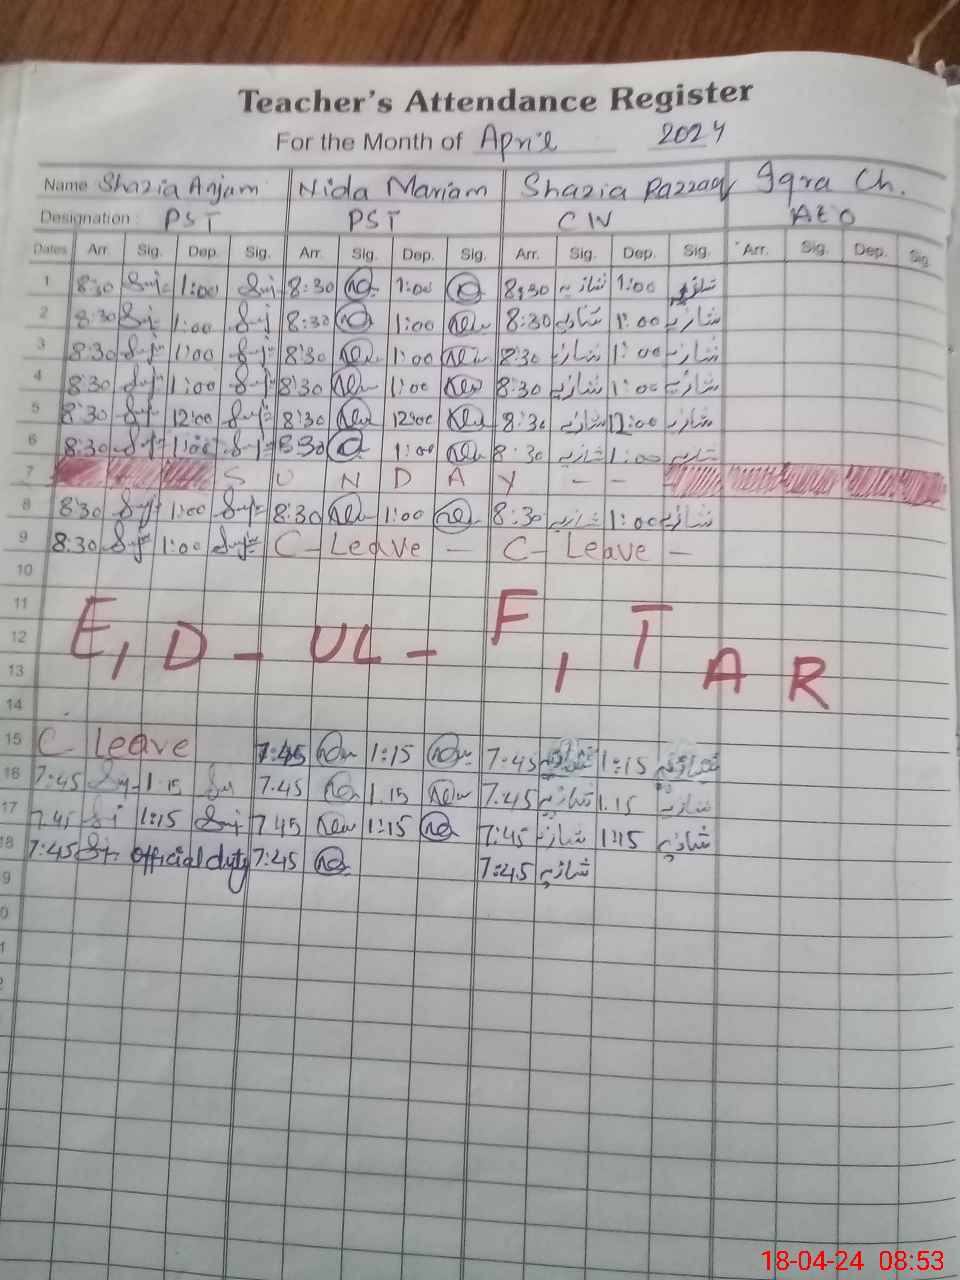 Teacher's Attendance Register
For the Month of April 2024
Name Shazia Anjam Nida Mariam Shazia Razzaq Iqra Ch.
Designation : PST PST CIV AEO
Dates Arr. Sig. Dep. Sig. Arr. Sig. Dep. Sig. Arr. Sig. Dep. Sig. Arr. Sig. Dep. Sig.
1 8:30 1:00 8:30 1:00 8:30 شازیہ 1:00 شازیہ
2 8:30 1:00 8:30 1:00 8:30 شازیہ 1:00 شازیہ
3 8:30 1:00 8:30 1:00 8:30 شازیہ 1:00 شازیہ
4 8:30 1:00 8:30 1:00 8:30 شازیہ 1:00 شازیہ
5 8:30 12:00 8:30 12:00 8:30 شازیہ 12:00 شازیہ
6 8:30 1:00 8:30 1:00 8:30 شازیہ 1:00 شازیہ
7 S U N D A Y - -
8 8:30 1:00 8:30 1:00 8:30 شازیہ 1:00 شازیہ
9 8:30 1:00 C - Leave - C - Leave -
10
11
12 E, D - UL - F, T A R
13
14
15 C Leave 7:45 1:15 7:45 شازیہ 1:15 شازیہ
16 7:45 1:15 7:45 1:15 7:45 شازیہ 1:15 شازیہ
17 7:45 1:15 7:45 1:15 7:45 شازیہ 1:15 شازیہ
18 7:45 official duty 7:45 7:45 شازیہ
9
0
1
2
18-04-24 08:53